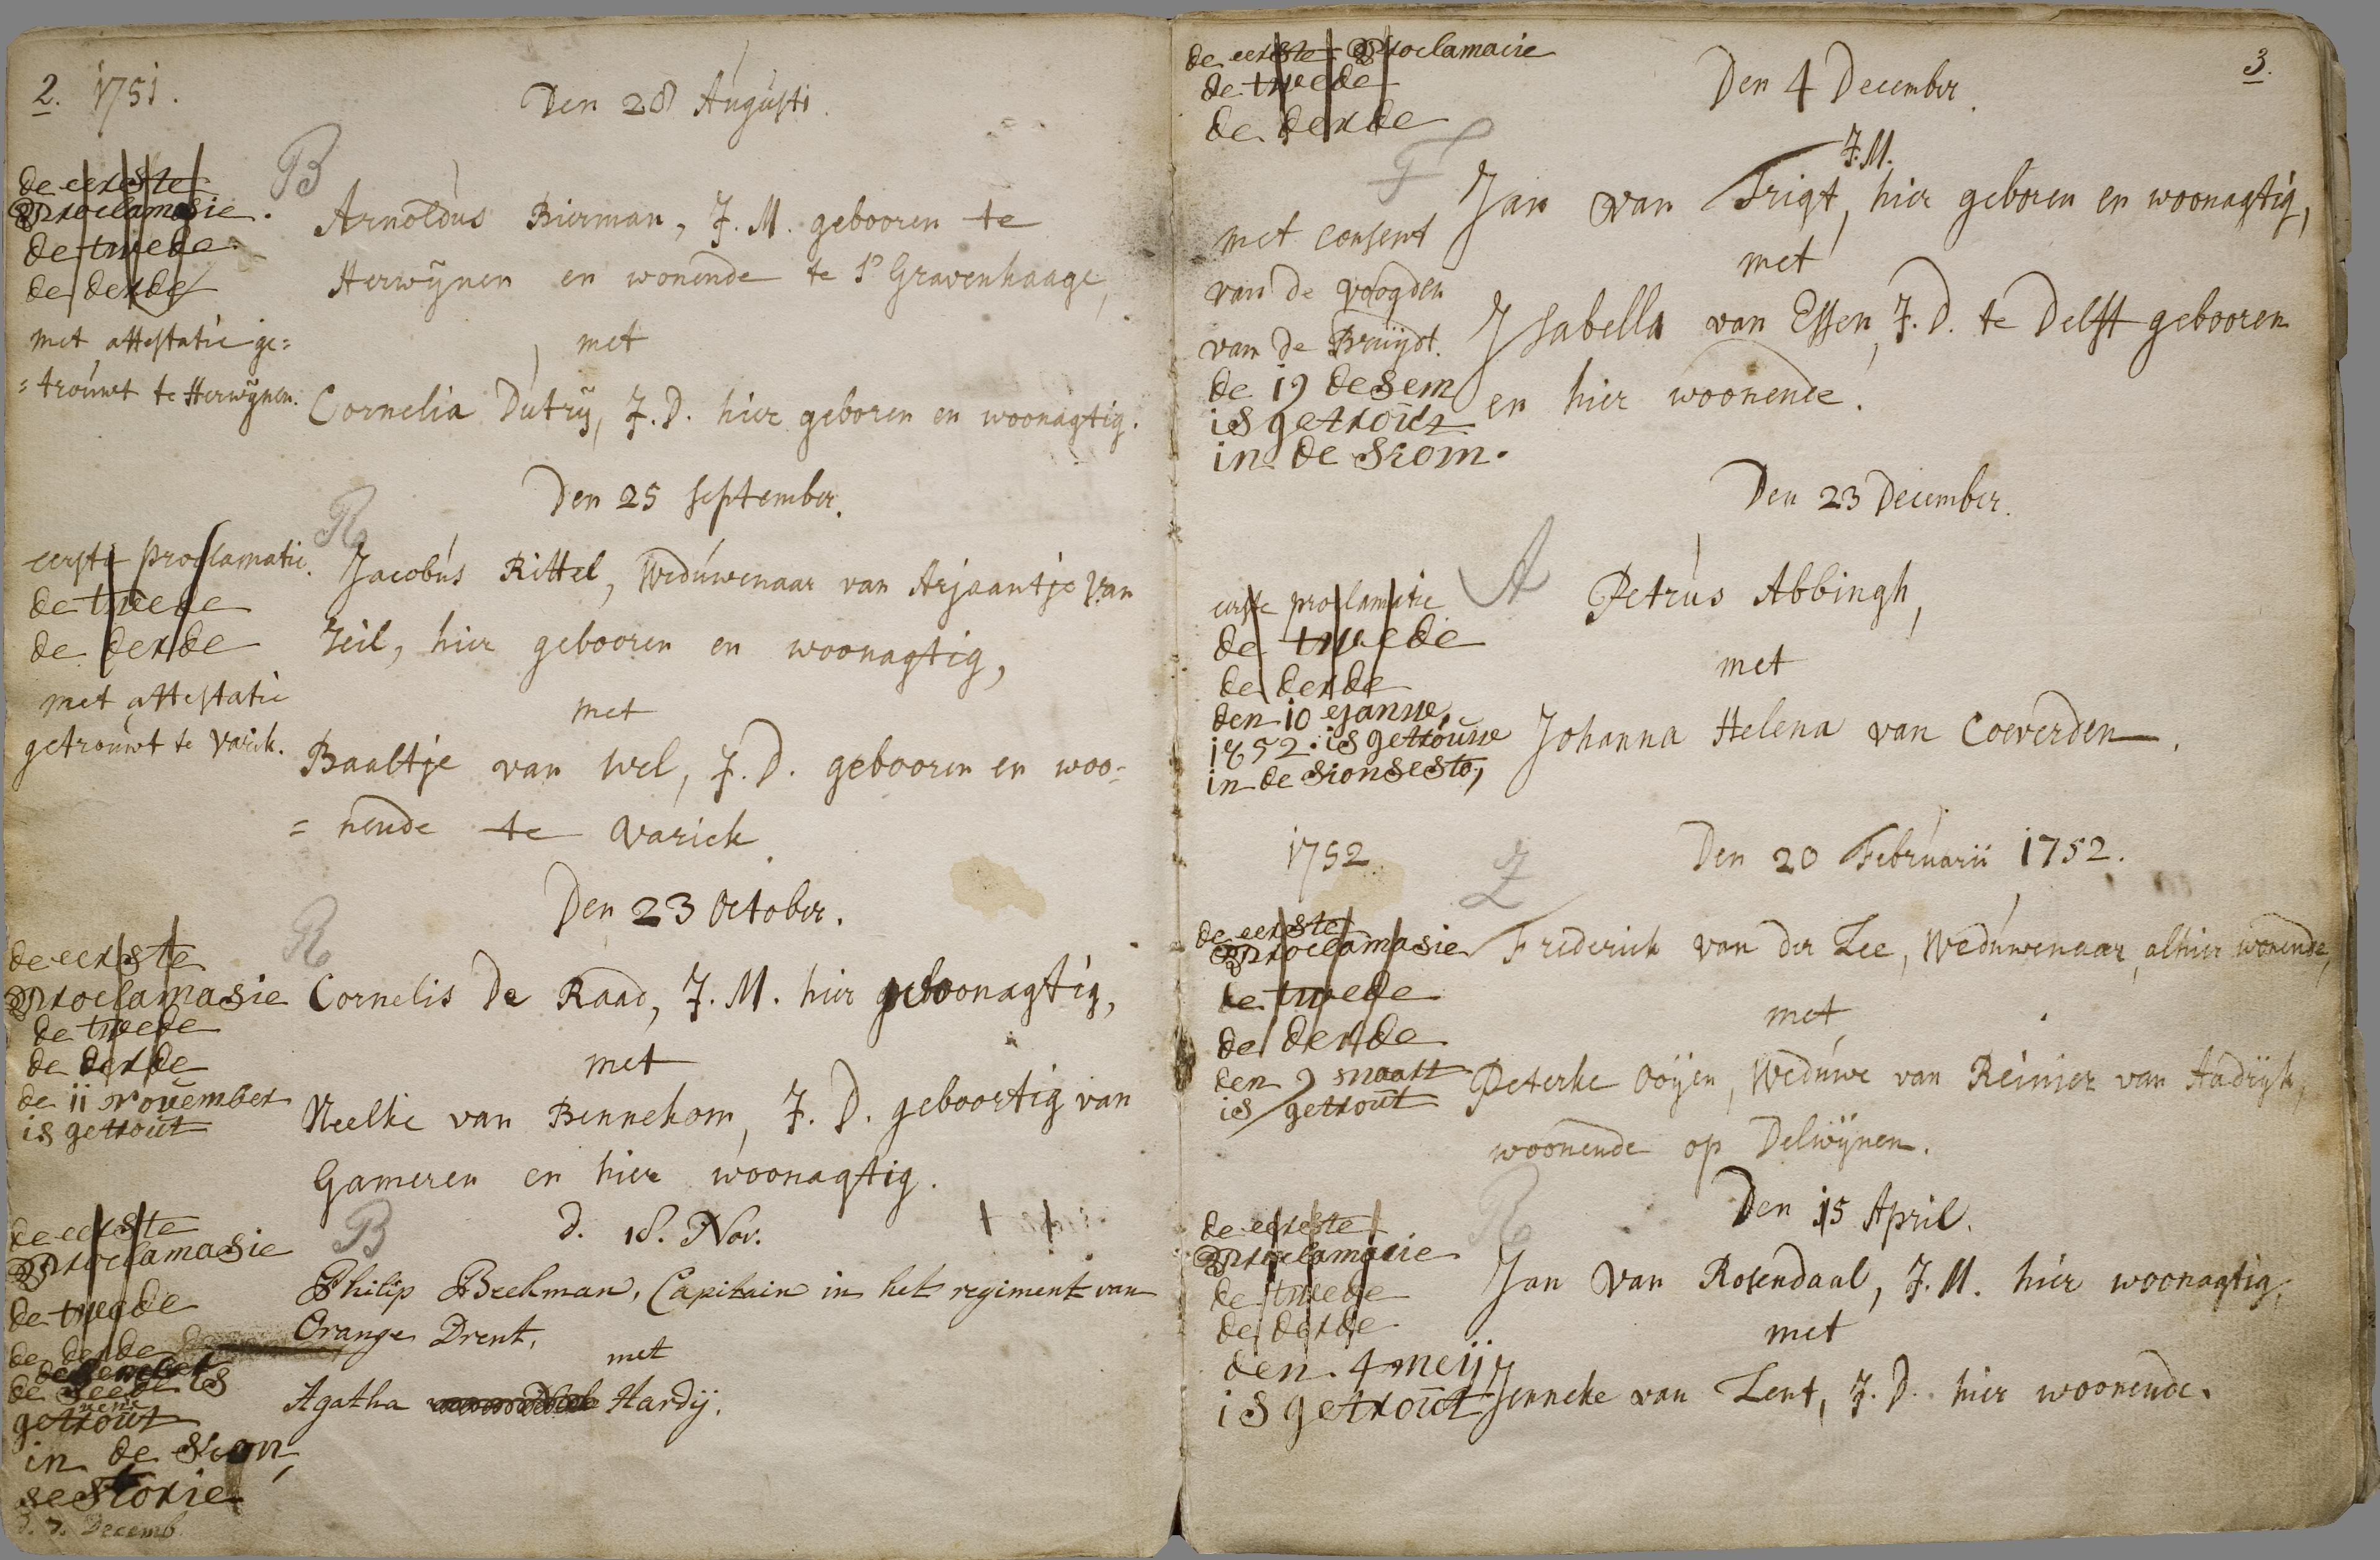 2. 1751.
Den 28 Augusti.
de eerste
Proclamasie.
de twede
de derde
met attestatie ge=
=trouwt te Herwijnen.
B
Arnoldus Bierman, J. M. gebooren te
Herwijnen en wonende te s' Gravenhaage,
met
Cornelia Dutrij, J. D. hier geboren en woonagtig.
Den 25 September.
eerste proclamatie.
de twede
de derde
met attestatie
getrouwt te Varik.
R
Jacobus Rittel, Weduwenaar van Arjaantje van
Zeil, hier gebooren en woonagtig,
met
Baaltje van Wel, J. D. gebooren en woo=
=nende te Varick.
Den 23 October.
de eerste
Proclamasie
de twede
de derde
de 11 november
is getrout
R
Cornelis De Raad, J. M. hier woonagtig,
met
Neeltie van Bennekom, J. D. geboortig van
Gameren en hier woonagtig.
d. 18. Nov.
de eerste
Proclamasie
de twede
de derde
de is
getrout
in de Sion
sestorie
d. 7. Decemb.
B
Philip Beekman, Capitain in het regiment van
Orange Drent,
met
Agatha Hardij.
3.
de eerste Proclamacie
de twede
de derde
Den 4 December.
F
met consent
van de voogden
van de Bruijdt.
de 19 desem
is getrout
in de siom.
J. M.
Jan van Frigt, hier geboren en woonagtig,
met
Isabella van Essen, J. D. te Delft gebooren
en hier woonende.
Den 23 December.
eerste proclamatie
de twede
de derde
den 10 ejanue,
1752. is getrouwe
in de sionsesto,
A
Petrus Abbingh,
met
Johanna Helena van Coeverden.
1752.
Den 20 Februarii 1752.
Z
de eerste
Proclamasie
de twede
de derde
den 9 maart
is getrout
Frederick van der Zee, Weduwenaar, alhier wonende,
met
Peterke Ooijen, Weduwe van Reinier van Aadrijk,
woonende op Delwijnen.
Den 15 April.
de eerste
Proclamacie
de twede
de derde
den 4 meij
is getrout
R
Jan van Rosendaal, J. M. hier woonagtig,
met
Jenneke van Zent, J. D. hier woonende.